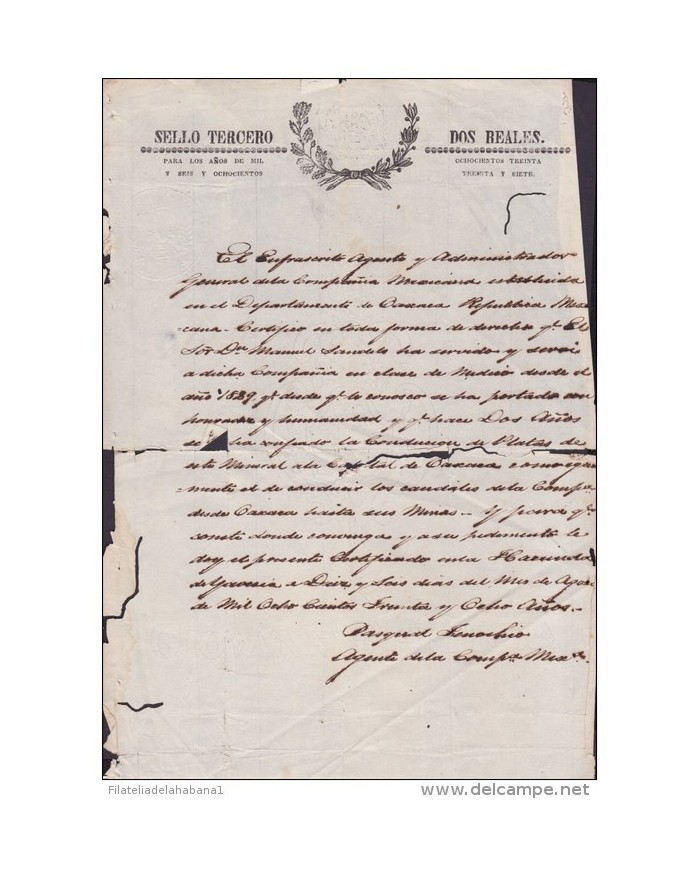 SELLO TERCERO
DOS REALES.
PARA LOS AÑOS DE MIL
Y SEIS Y OCHOCIENTOS
OCHOCIENTOS TREINTA
TREINTA Y SIETE.
El Enfrascrito Agente y Administrador
General de la Compañia Mexicana establecida
en el Departamento de Oaxaca Republica Mexi
cana - Certifico en toda forma de derecho qe. El
Sor. Dn. Manuel ha servido y servi
a dicha Compañia en clase de Medico desde el
año 1829 qe. desde qe. le conosco se ha portado con
honradez y humanidad y qe. hace Dos Años
se ha confiado la Conducion de Platas de
este Mineral a la Capital de Oaxaca
mente el de conducir los caudales de la Compa.
desde Oaxaca hasta sus Minas.- Y para qe.
conste donde convenga y a su pedimento le
doy el presente Certificado en la Hacienda
de a Diez y Seis dias del Mes de Agos
de Mil Ocho Cientos Treinta y Ocho Años.-
Pasqual Fenochio
Agente de la Compa. Mexa.
Filateliadelahabana1
www.delcampe.net